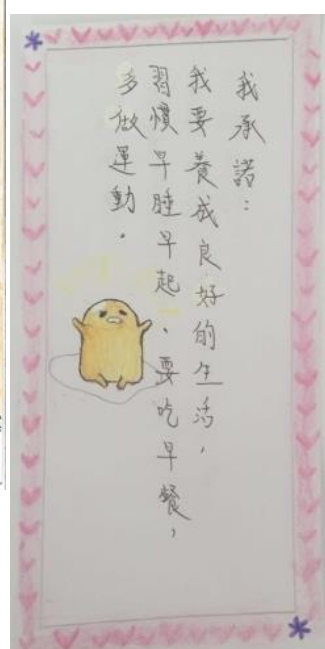 我承諾：
我要養成良好的生活，
習慣早睡早起、要吃早餐，
多做運動。